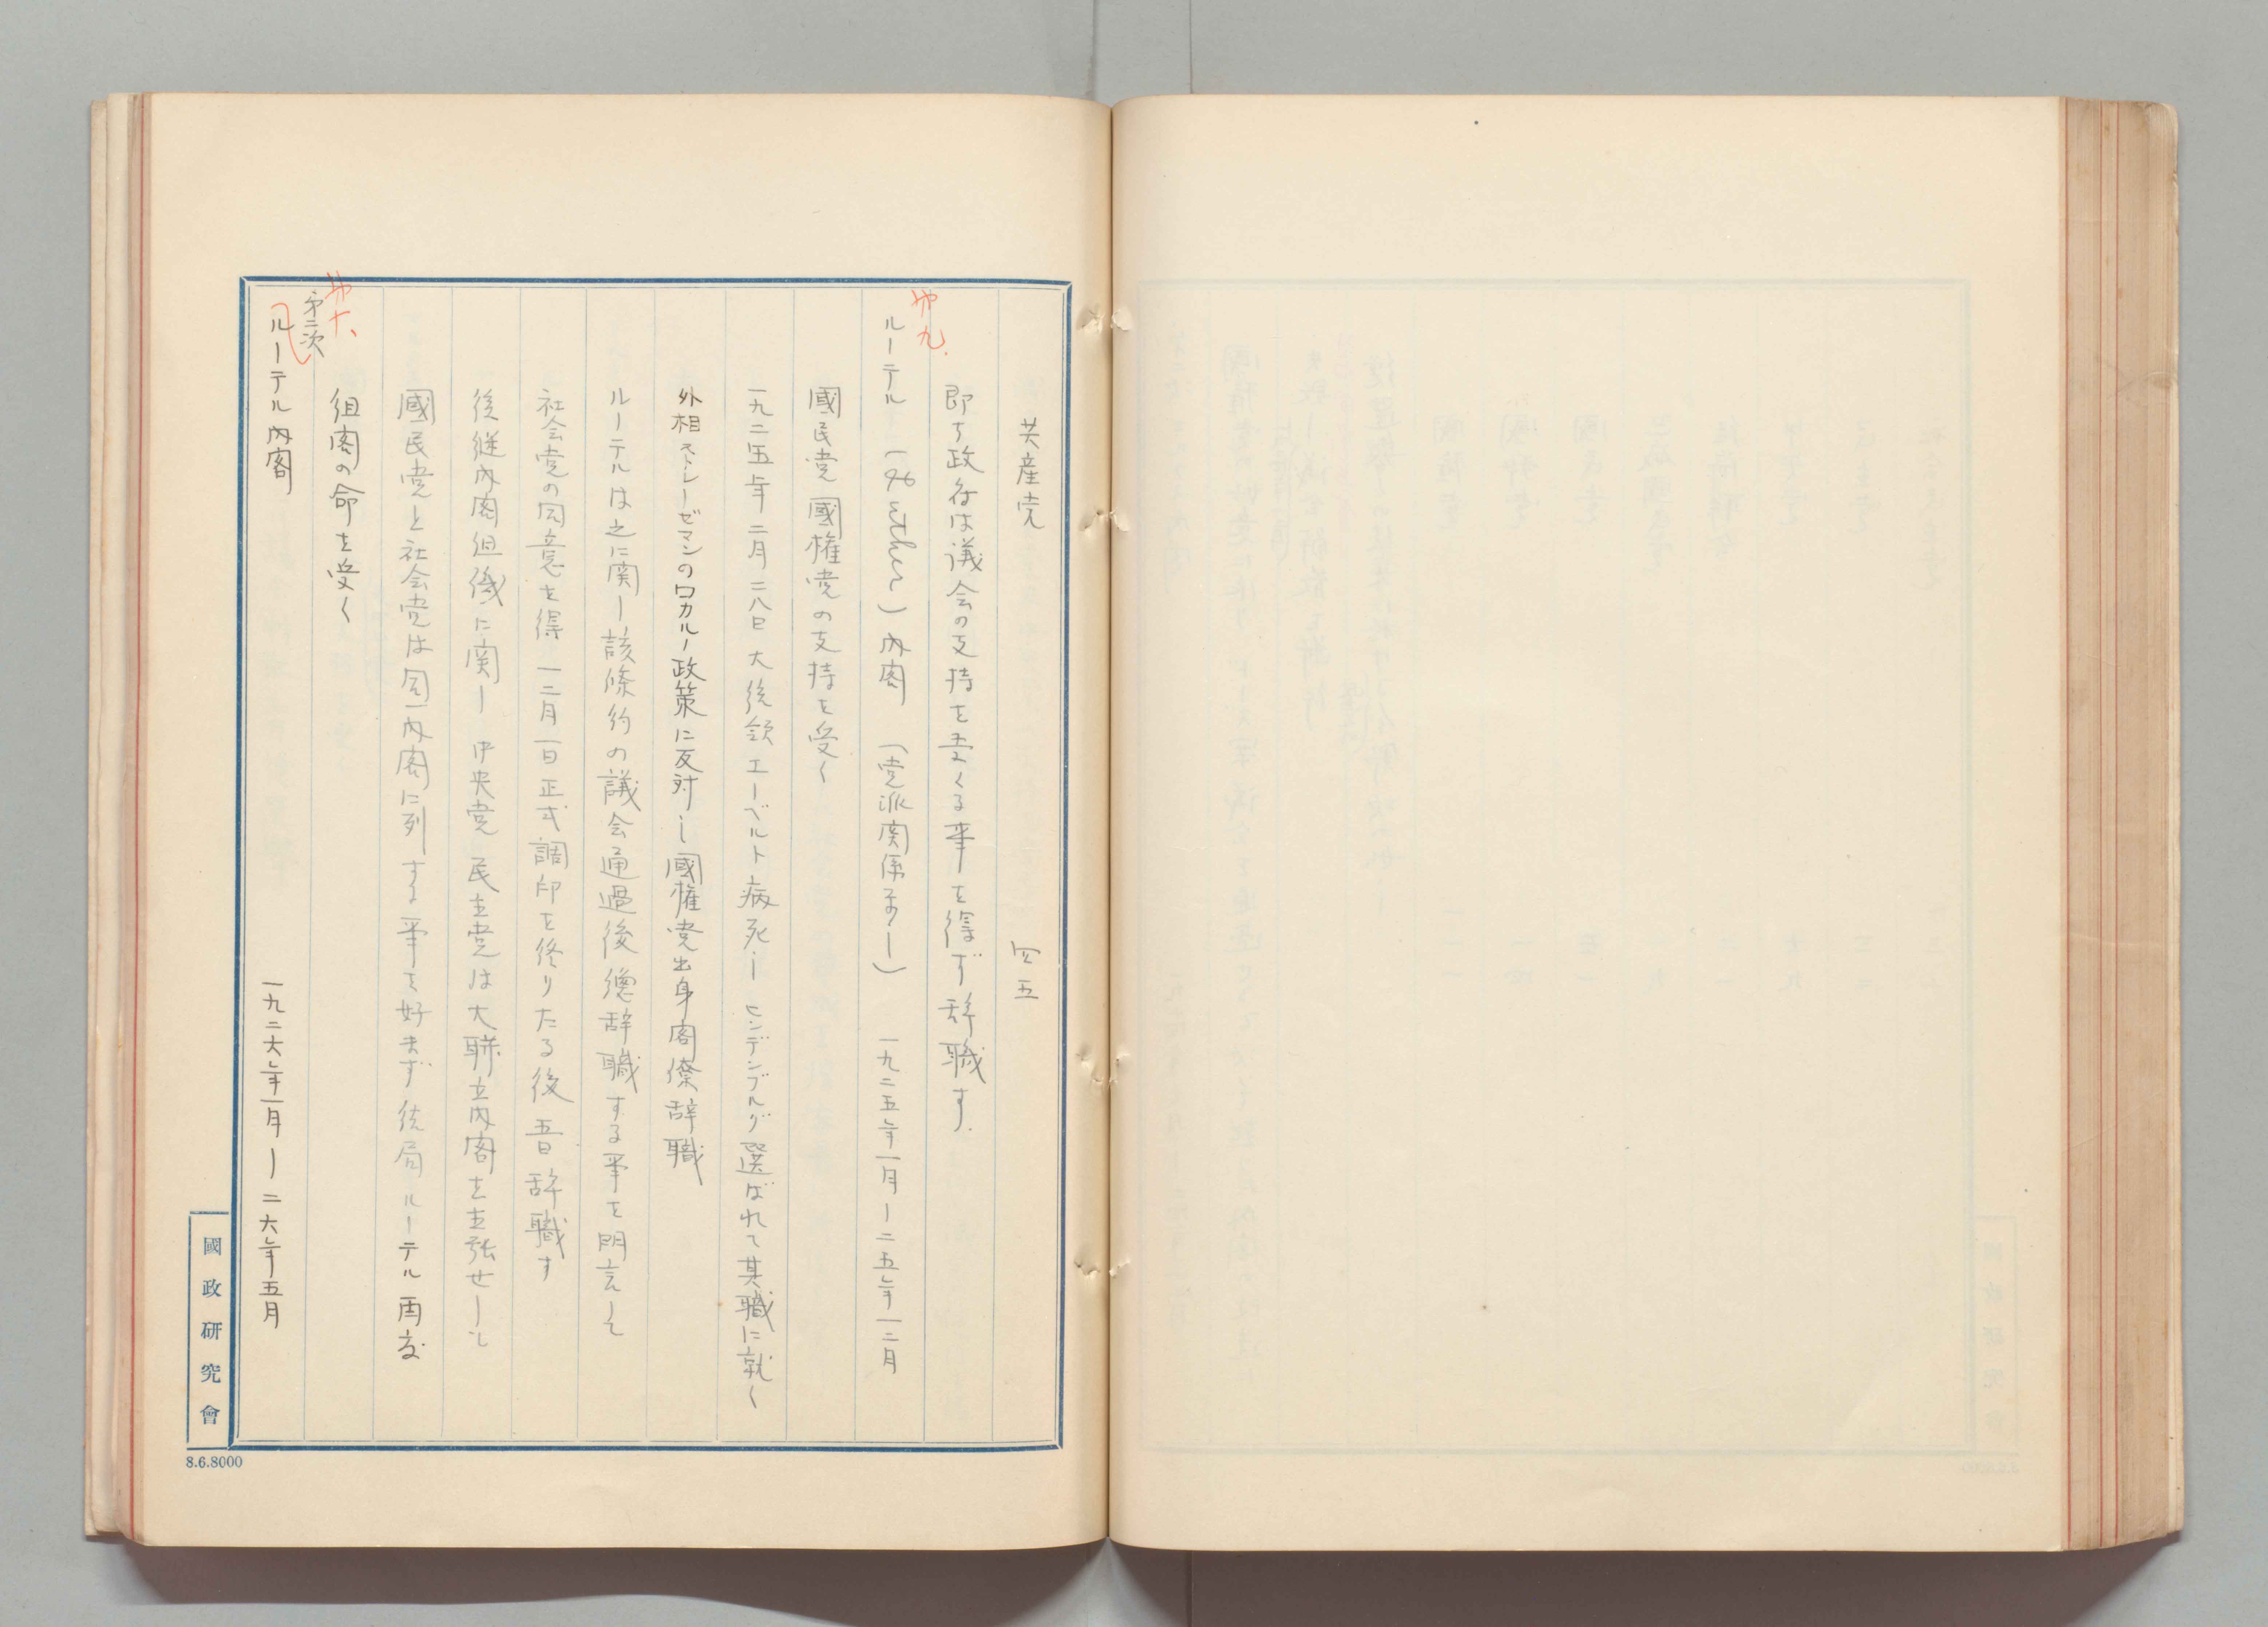 共産党　四五
即ち政府は議会の支持を受くる事を得ず辞職す.
第九.
ルーテル (　　) 内閣 (党派関係なし) 一九二五年一月ー二五年一二月
國民党 國権党の支持を受く
一九二五年二月二八日大統領エーベルト病死しヒンデンブルグ選ばれて其職に就く
外相ストレーゼマンのロカルノ政策に反対し國権党出身閣僚辞職
ルーテルは之に関し該條約の議会通過後總辞職する事を明言して
社会党の同意を得 一二月一日正式調印を終りたる後五日辞職す
後継内閣組織に関し 中央党 民主党は大聯立内閣を主張せしも
國民党と社会党は同一内閣に列する事を好まず 結局ルーテル再び
組閣の命を受く
第十、
第二次
ルーテル内閣　一九二六年一月ー二六年五月
國政研究會
8.6.8000